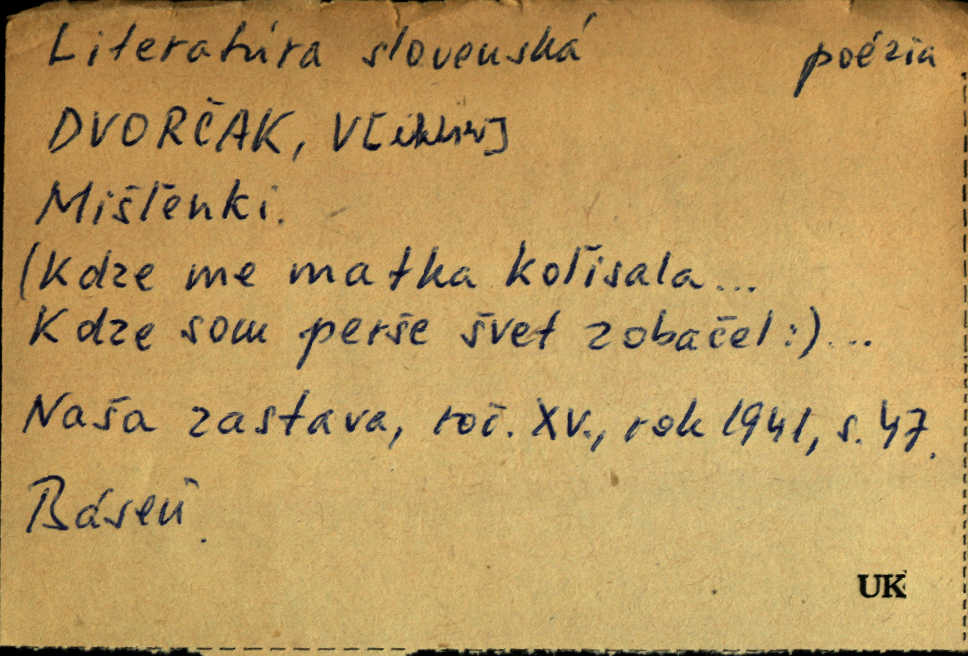 Literatúra slovenská poézia
DVORČAK, V[iktor]
Mišlenki.
(Kdze me matka kolisala...
Kdze som perše švet zobačel:)...
Naša zastava, roč. XV., rok 1941, s. 47.
Báseň.
UK